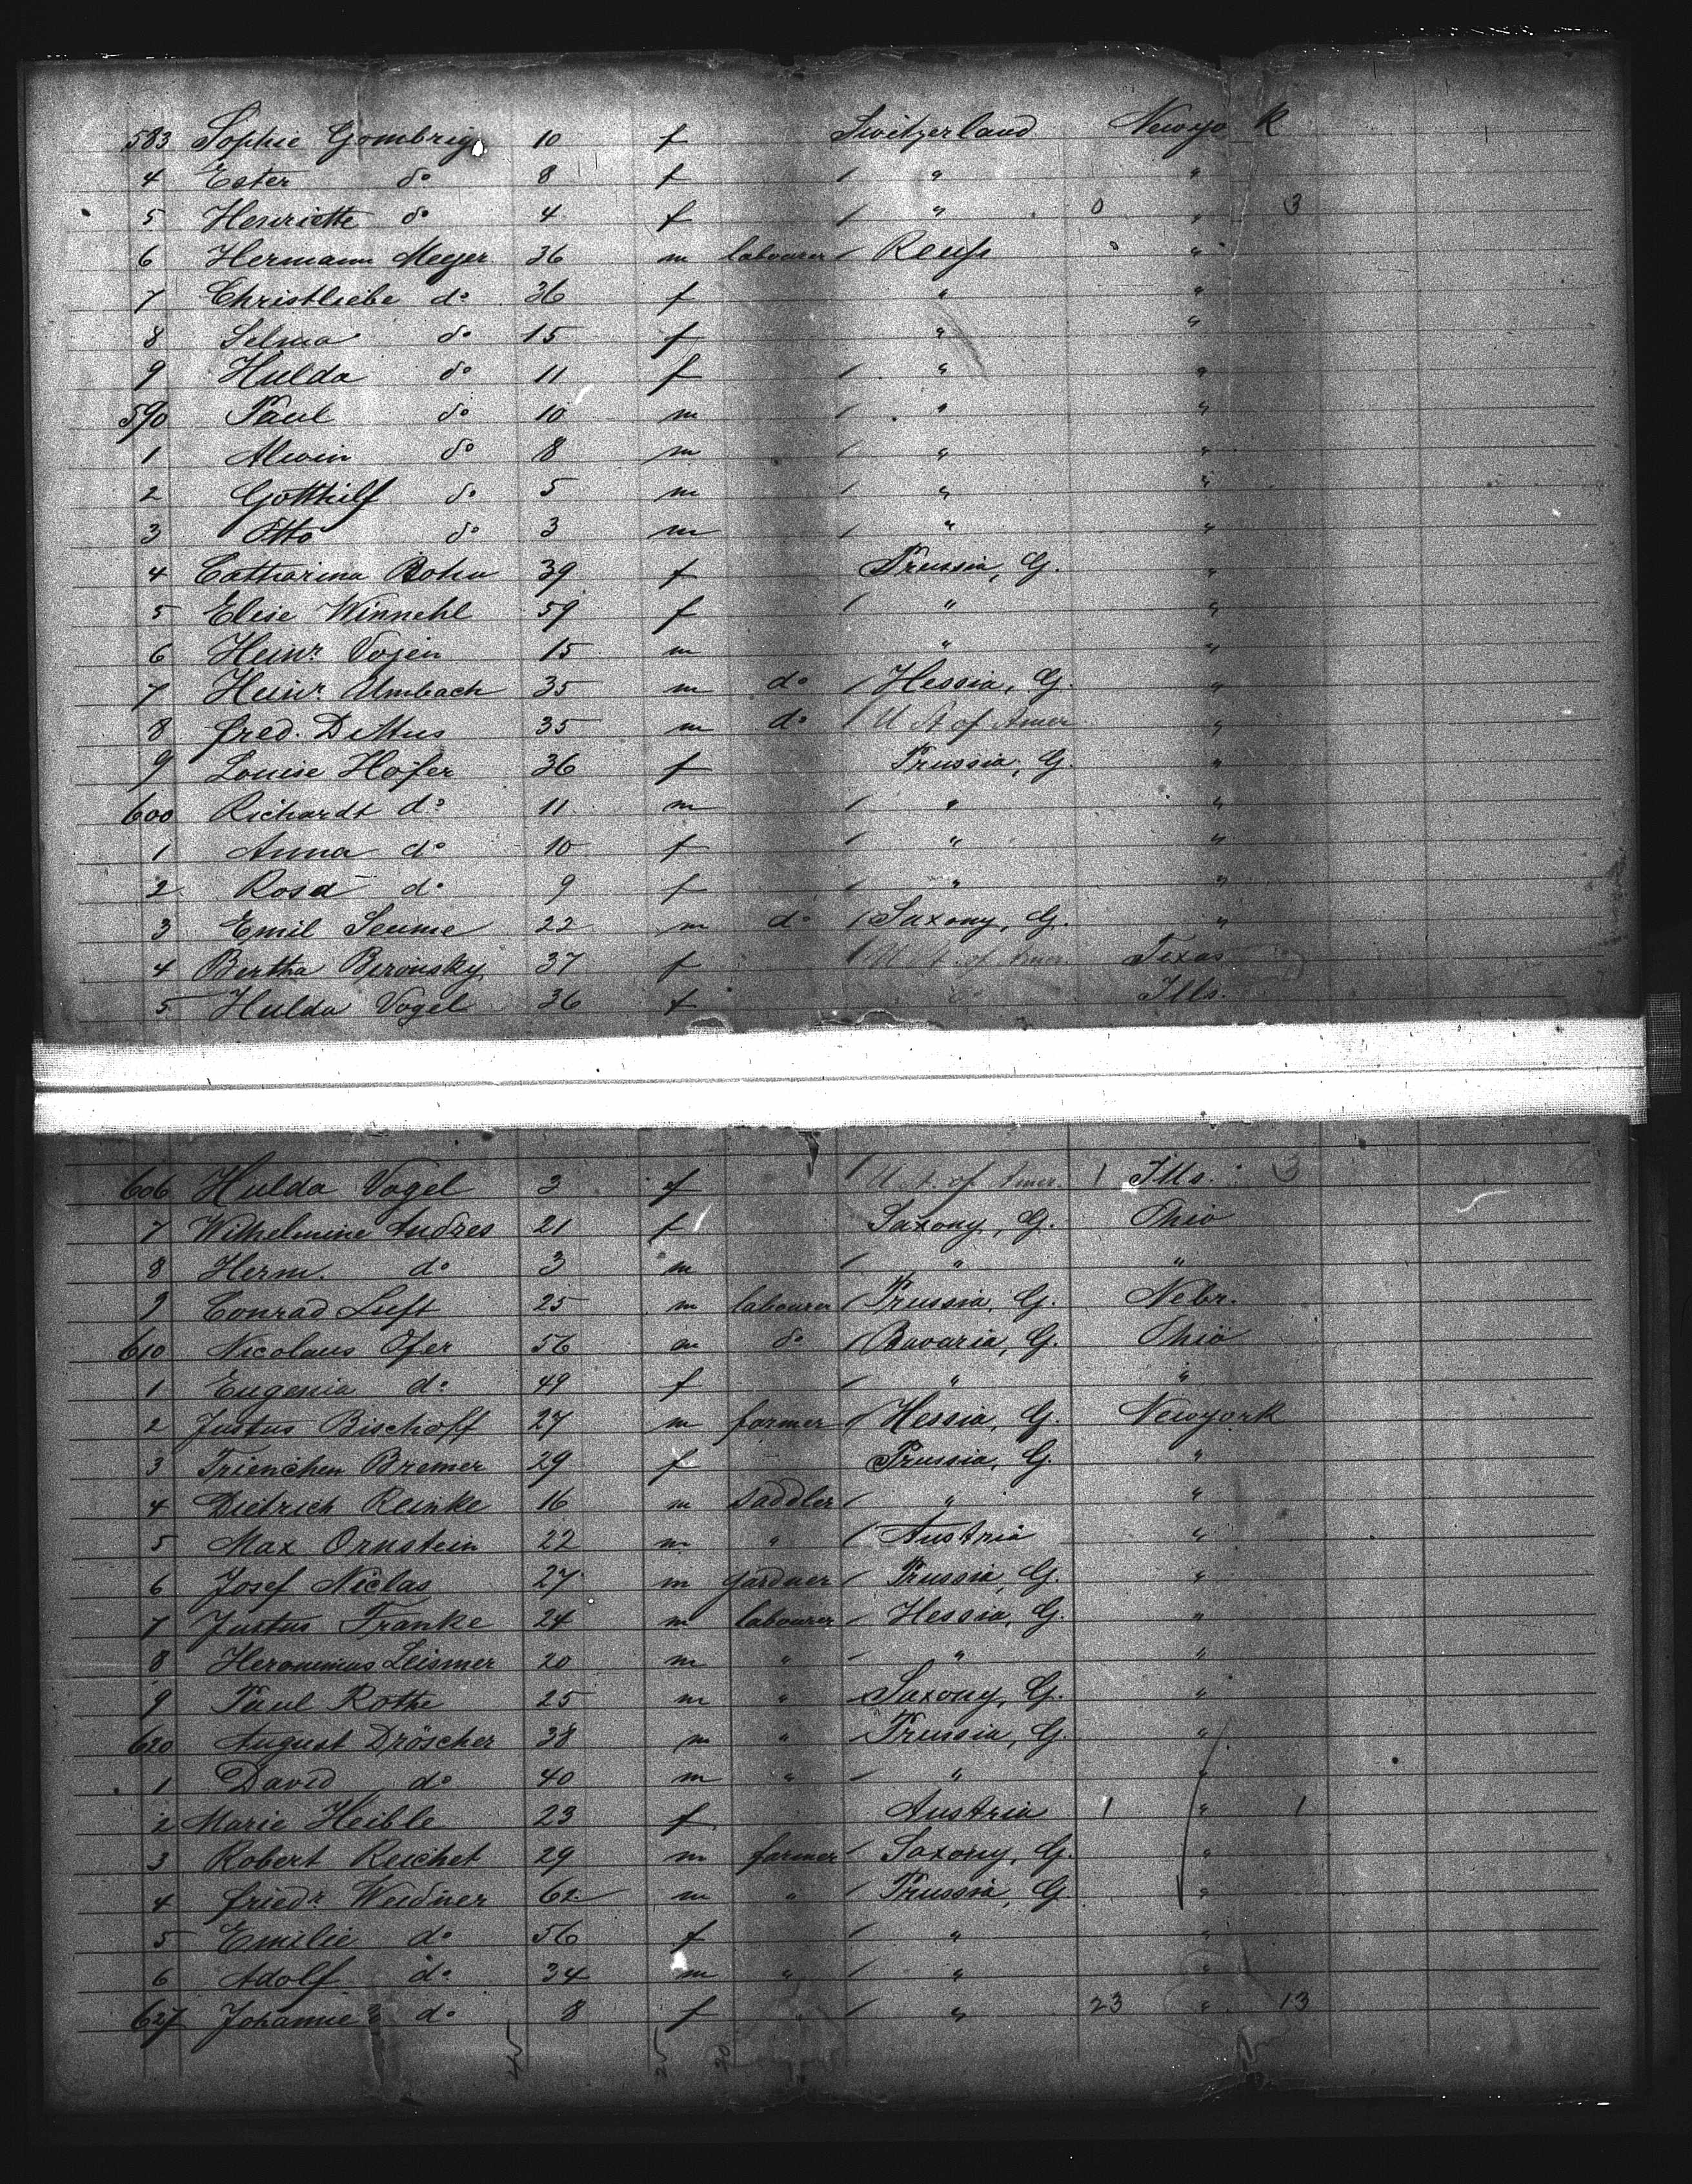 583 Sophie Gombrig 10 f Switzerland Newyo k
4 Ester do 8 f / " "
5 Henriette do 4 f / " 0 " 3
6 Hermann Meyer 36 m labourer / Reuss "
7 Christliebe do 36 f " "
8 Selma do 15 f " "
9 Hulda do 11 f / " "
590 Paul do 10 m / " "
1 Alwin do 8 m / " "
2 Gotthilf do 5 m / " "
3 Otto do 3 m / " "
4 Catharina Bohn 39 f Prussia, G. "
5 Elise Winnehl 59 f / " "
6 Heinr. Vojen 15 m " "
7 Heinr. Umbach 35 m do / Hessia, G. "
8 Fred. Dittus 35 m do / U St of Amer "
9 Louise Hofer 36 f Prussia, G. "
600 Richardt do 11 m / " "
1 Anna do 10 f / " "
2 Rosa do 9 f / " "
3 Emil Seume 22 m do / Saxony, G. "
4 Bertha Beronsky 37 f / U St. of Amer. Texas
5 Hulda Vogel 36 f Ills.
606 Hulda Vogel 3 f / U St. of Amer. 1 Ills. 3
7 Wilhelmine Andres 21 f Saxony, G. Ohio
8 Herm. do 3 m / " "
9 Conrad Luft 25 m labourer / Prussia, G. Nebr.
610 Nicolaus Ofer 56 m do / Bavaria, G. Ohio
1 Eugenia do 49 f / " "
2 Justus Bischoff 27 m farmer / Hessia, G. Newyork
3 Trienchen Bremer 29 f Prussia, G. "
4 Dietrich Reinke 16 m saddler / " "
5 Max Ornstein 22 m " / Austria "
6 Josef Niclas 27 m gardner / Prussia, G "
7 Justus Franke 24 m labourer / Hessia, G. "
8 Heronimus Leismer 20 m " / " "
9 Paul Rothe 25 m " / Saxony, G. "
620 August Dröscher 38 m " / Prussia, G. "
1 David do 40 m " / " "
2 Marie Heible 23 f Austria 1 " 1
3 Robert Reichet 29 m farmer / Saxony, G. "
4 Friedr. Weidner 62 m " / Prussia, G "
5 Emilie do 56 f / " "
6 Adolf do 34 m " / " "
627 Johanne do 8 f / " 23 " 13